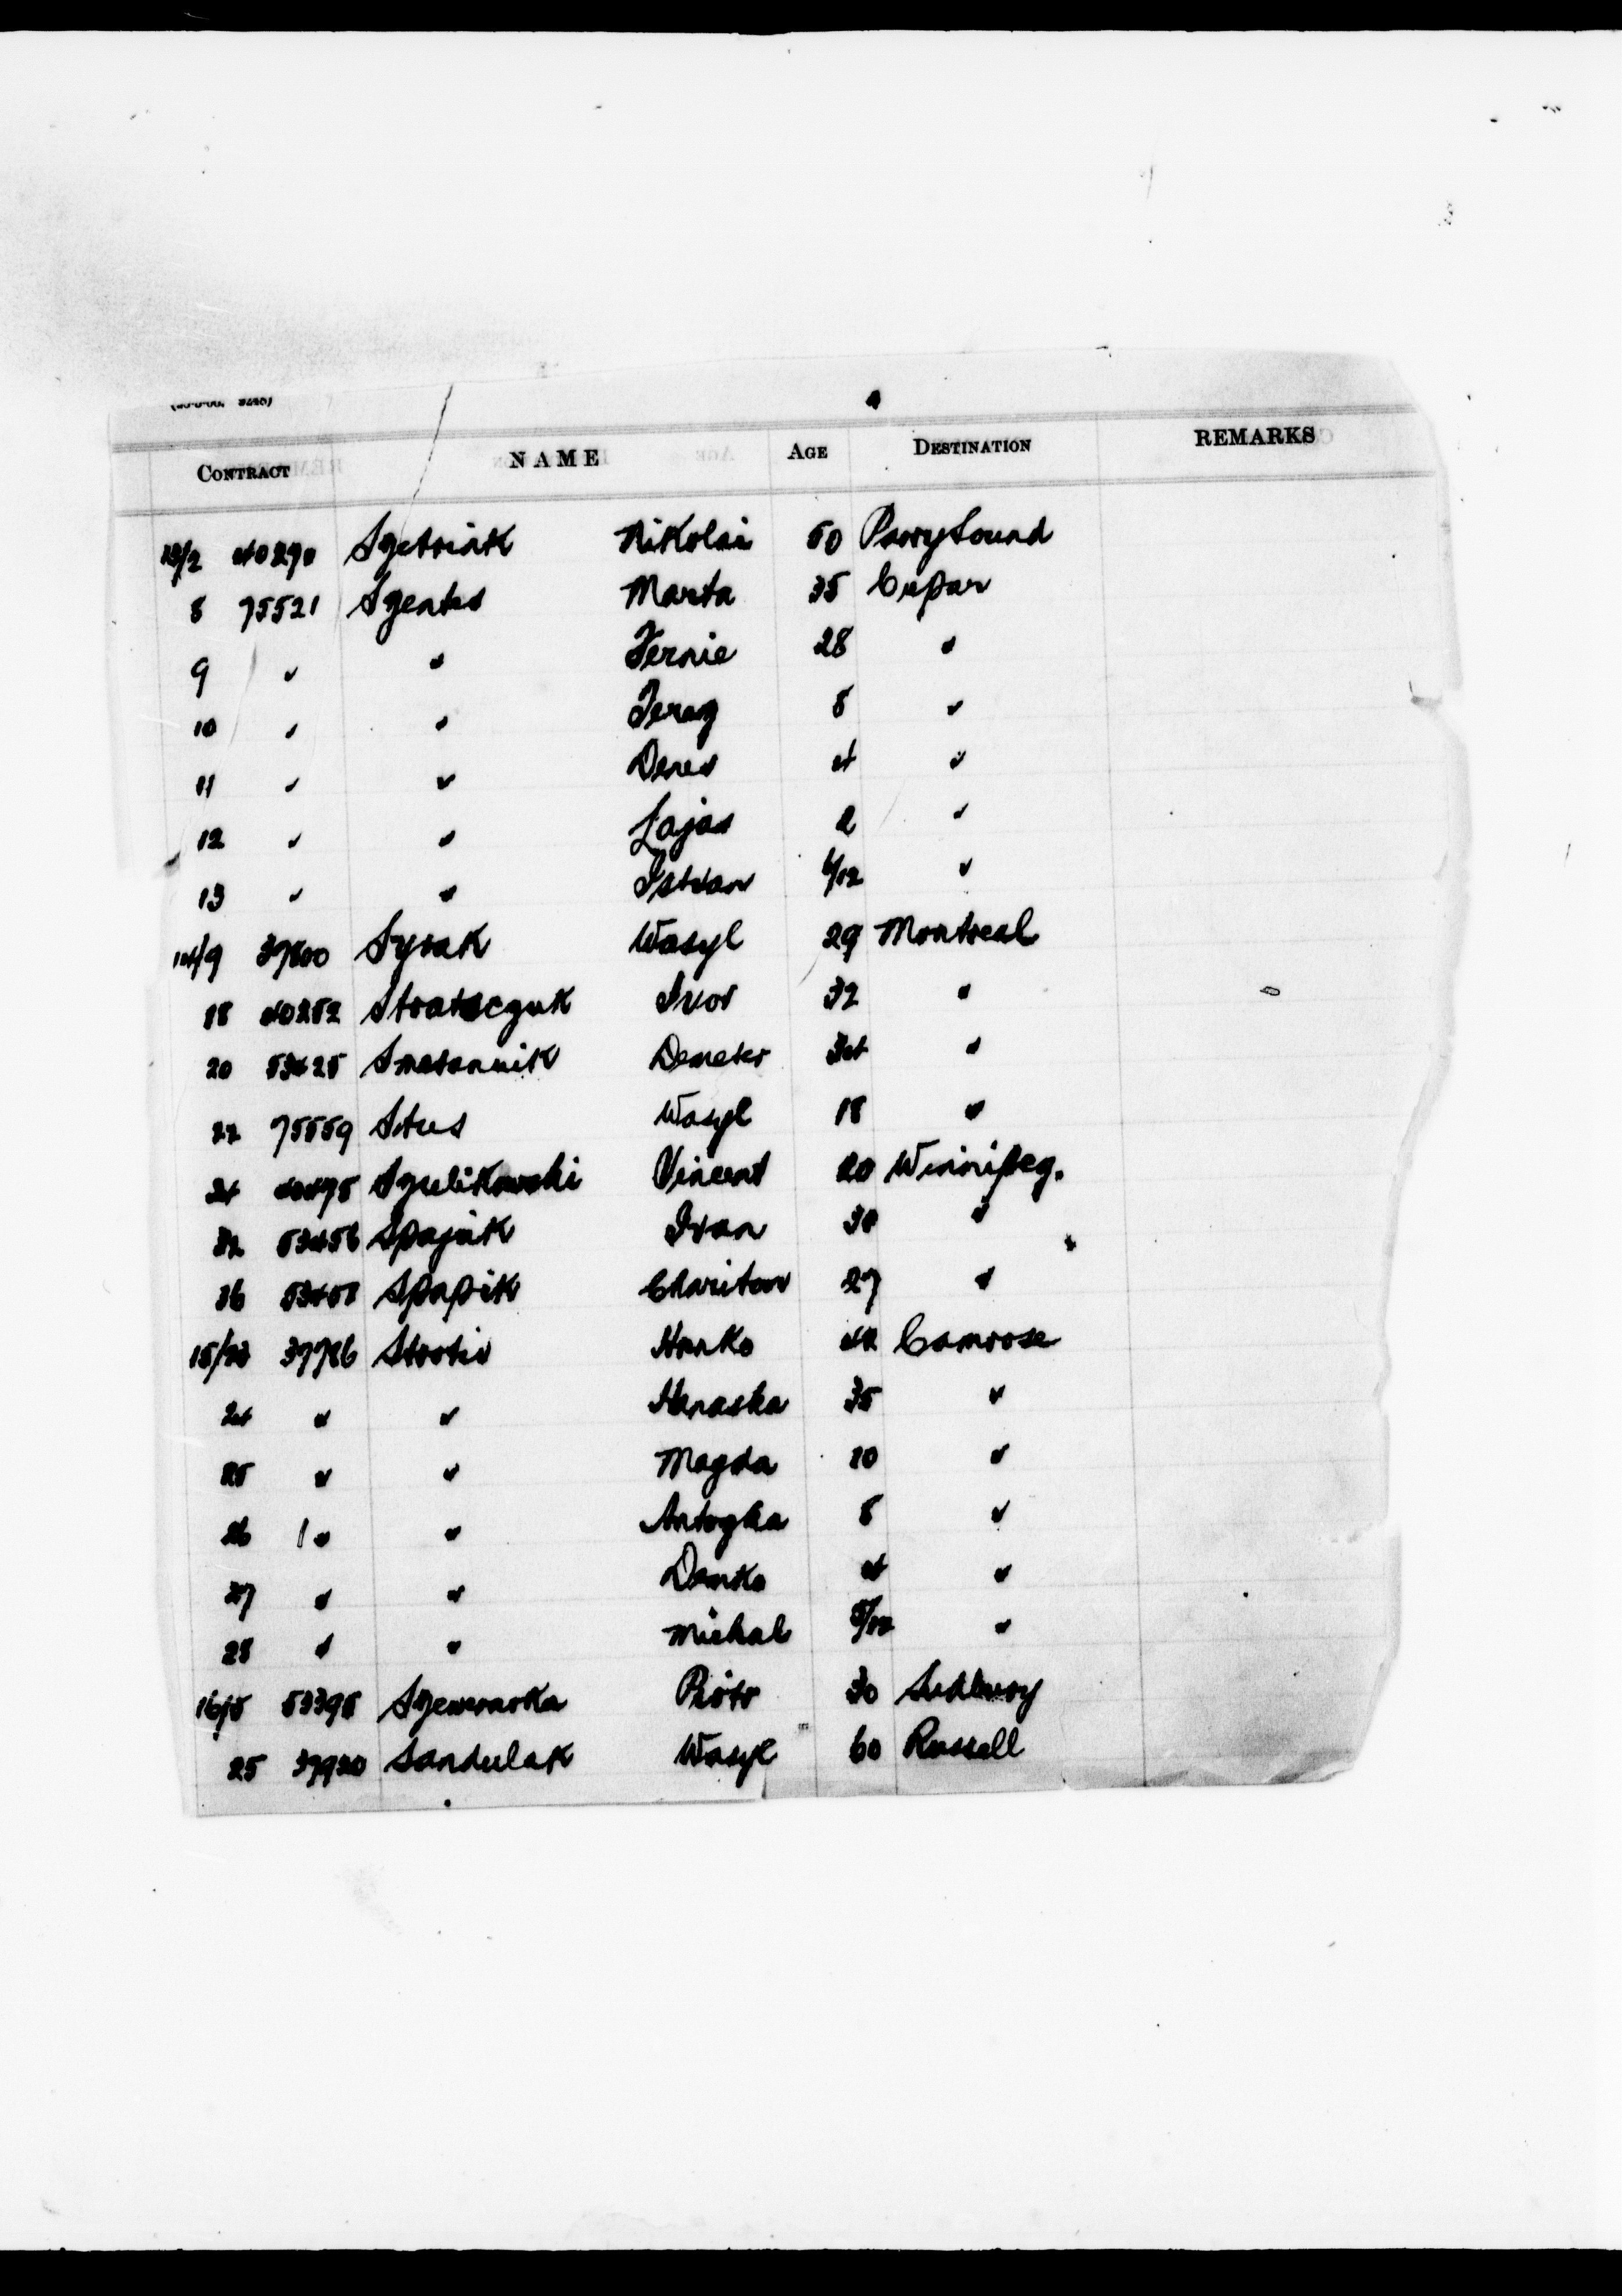 CONTRACT NAME AGE DESTINATION REMARKS
13/2 40290 Szetriak Nikolai 50 Parry Sound
8 75521 Szentes Marta 35 Cupar
9 " " Fernie 28 "
10 " " 8 "
11 " " Denes 4 "
12 " " Lajos 2 "
13 " " Istvan 6/12 "
14/9 37800 Syrak Wasyl 29 Montreal
18 40282 Stratsczuk 32 "
20 53425 Smetanuik Demeter 34 "
22 75559 Stus Wasyl 18 "
24 40475 Szulikowski Vincent 20 Winnipeg.
32 53456 Spajuk Ivan 30 "
36 Spapik Chariton 27 "
15/23 37786 Hanko 42 Camrose
24 " " Hanaska 35 "
25 " " Magda 10 "
26 " " 8 "
27 " " Danko 4 "
28 " " Michal "
16/5 53395 Piotr 30 Sudbury
25 37920 Sandulak Wasyl 60 Russell